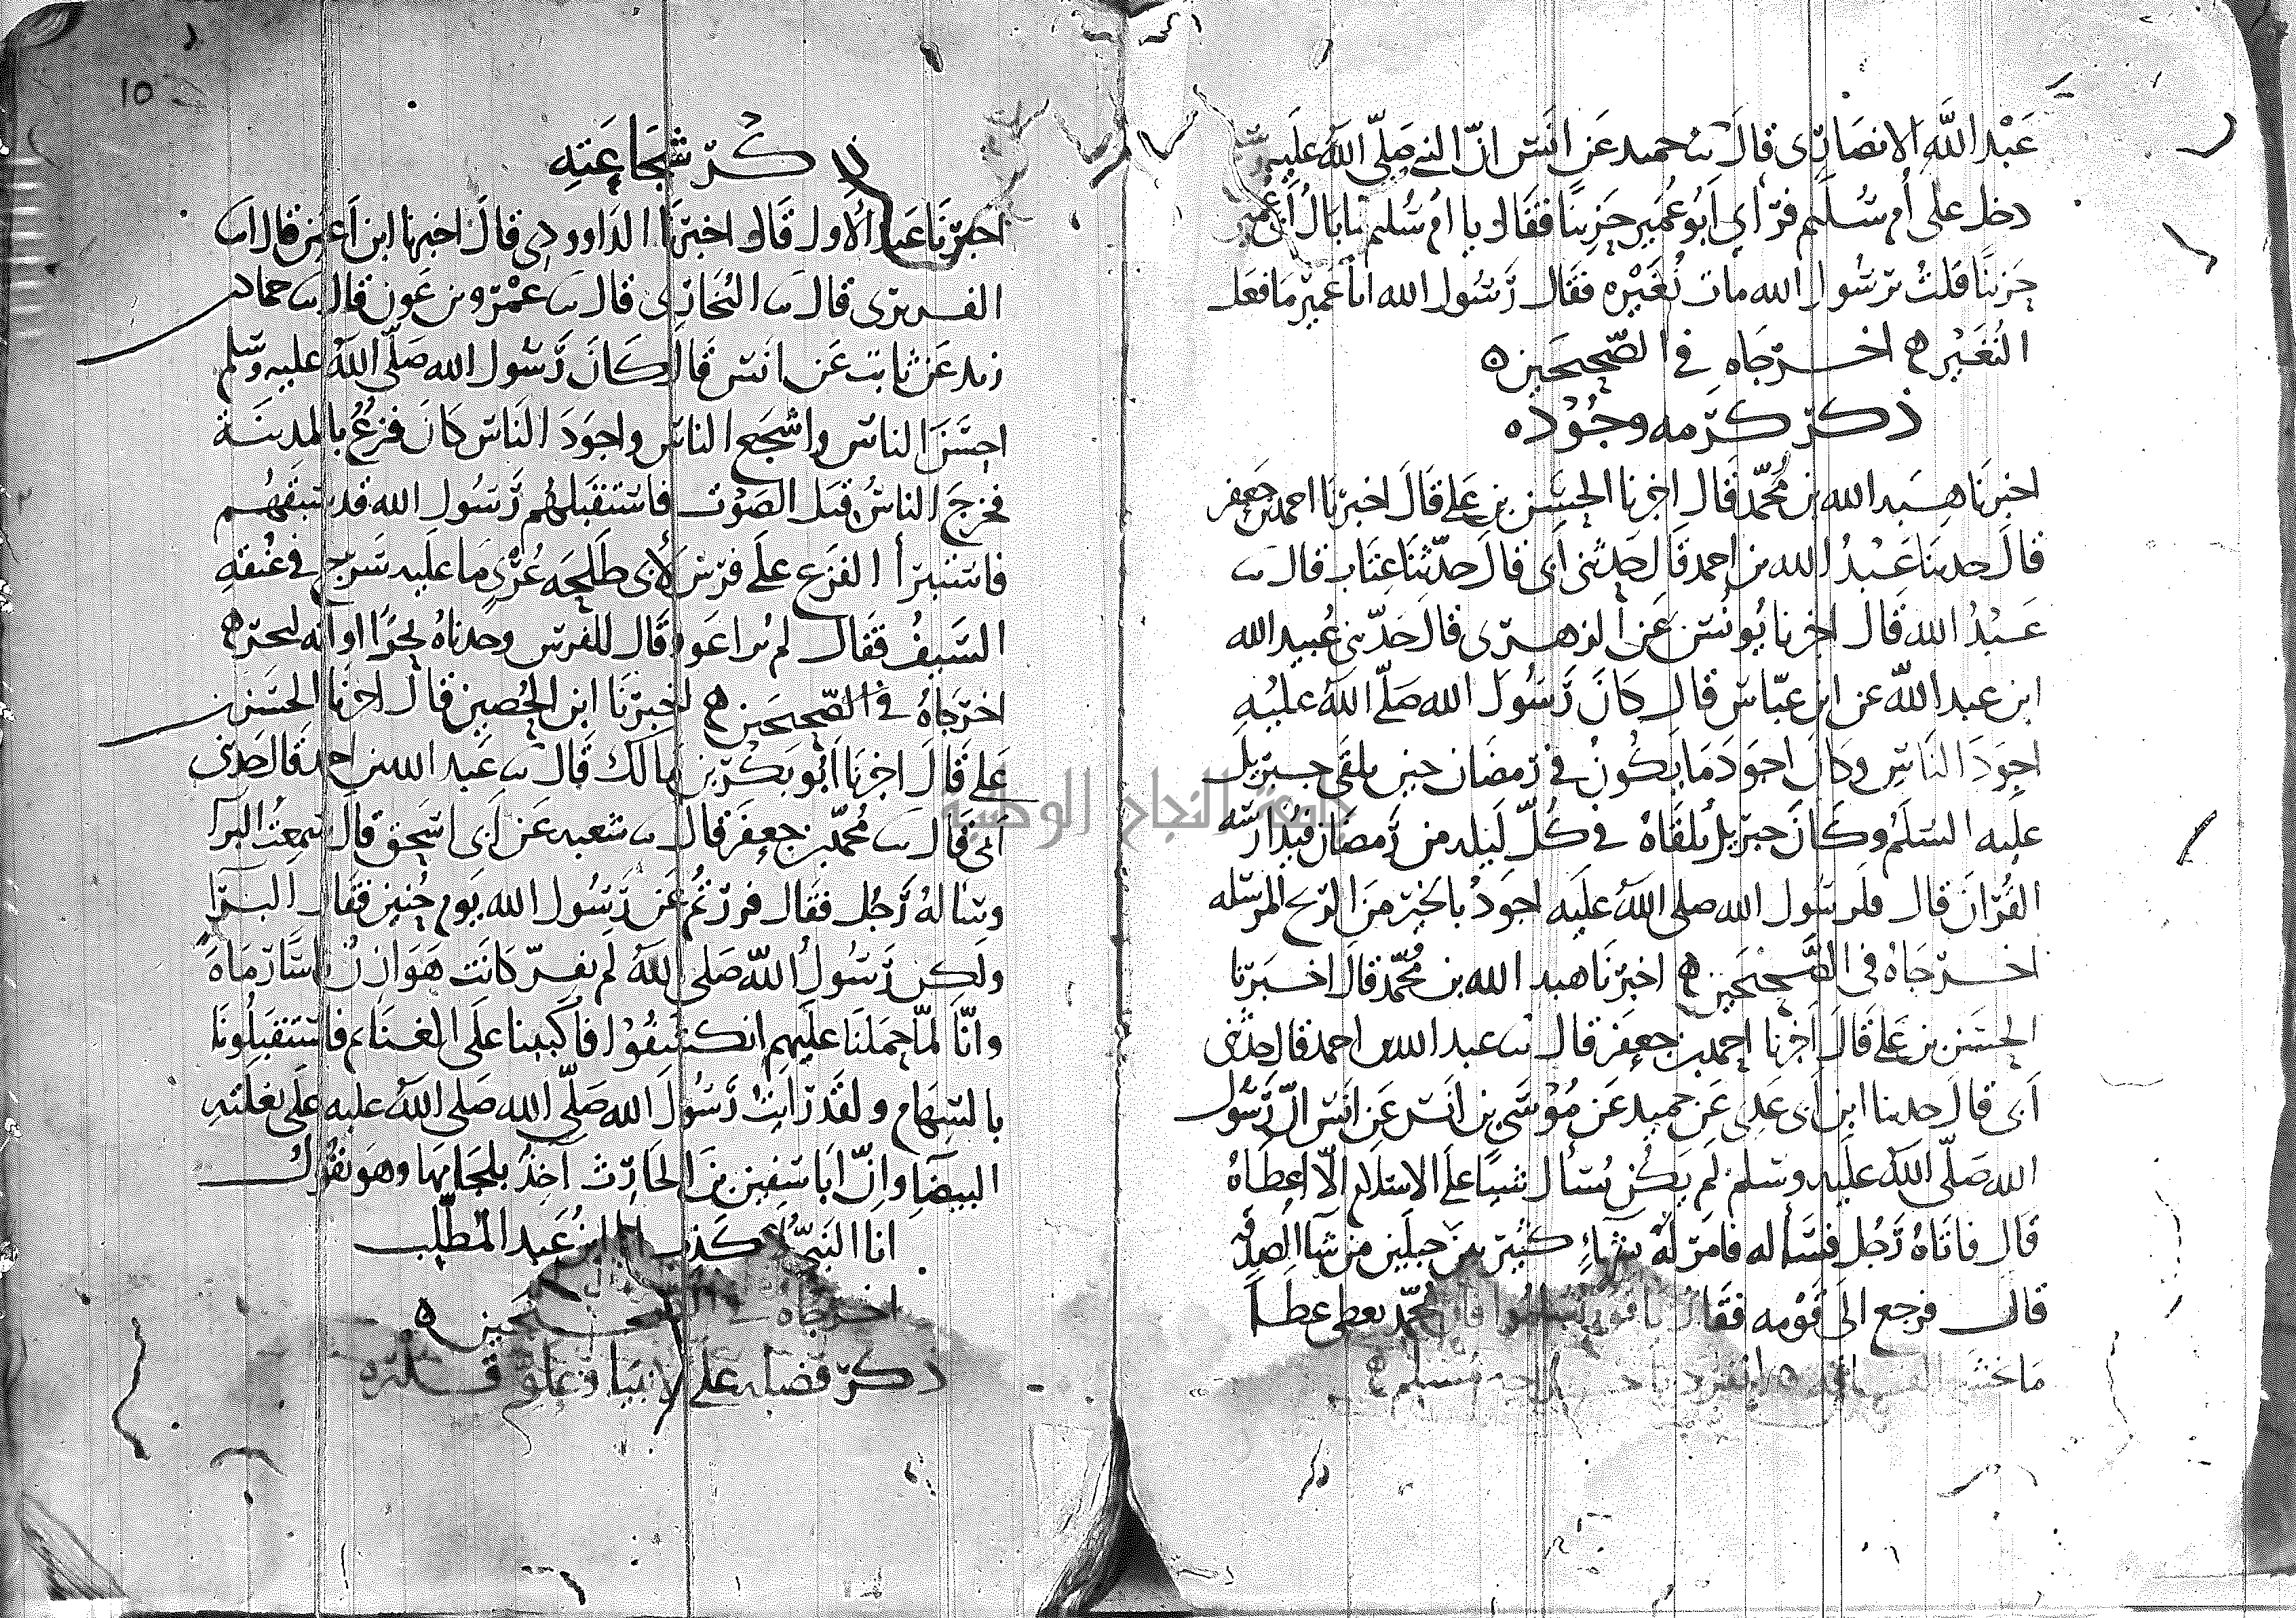 عَبْد اللَّه الانصَارِي قَالَ ثنا حميد عَن انَس انّ النبي صَلّى اللهُ عَلَيه
دخل على أم سُلَيم فرَأى أبَو عُمَير حَزِينًا فقَال يا أم سُليم ما بَال أبي عُمَير
حَزينًا قلتُ يرسُول الله مات نُغَيْره فقَال رَسُول الله ابا عُمَير مَا فعَل
النُغَيْر ه اخرجَاه في الصّحيحَين ه
ذكر كرَمه وجُوْده
اخبرنَا هِبَه الله بن مُحمّد قَال اخبرنا الحسَن بن عَلي قَالَ اخبرنَا احمد بن جَعفر
قَالَ حدثنَا عَبْدُ الله بن احمد قَال حَدثني أبي قالَ حدّثنَا عتَاب قال ثنا
عَبْدُ الله قَال اخبرنا يُونُس عَن الزهري قالَ حَدّثني عُبيد الله
ابن عبد الله عن ابن عبّاس قال كَانَ رَسُولَ الله صَلّى اللهُ عليْه
اجوَدَ النَّاس وكَان اجوَدَ مَا يكُونُ في رَمضَان حين يلقَى جبريل
عليه السَلَم وكَانَ جبريل يلقَاهُ في كُلّ لَيله من رَمضَان فيُدَارسه
القُرّانَ قال فلَرسُول الله صلى اللهُ علَيه اجوَدُ بالخَير منَ الريح المرسَله
اخرجَاهُ في الصَّحيحَين ه اخبرنَا هبه الله بن مُحمّد قَالَ اخبَرنا
الحسَن بن عَلي قَالَ أخبرنا احمد بن جعفَر قَال ثنا عبد الله بن احمد قال حدثني
أبي قَالَ حدثنا ابن أبي عَدي عَن حميد عَن مُوْسَى بن انَس عَن انَس انّ رَسُول
الله صَلّى اللهُ علَيه وسَلّم لَم يَكُن يُسأل شيئًا علَى الاسلام الّا اعطَاهُ
قَال فاتَاهُ رَجُل فسَأله فامَر لهُ بشَاءٍ كثير بين جبلَين من شآ الصدقه
قال فرجع الى قَوْمه فقَال يا قوم اسلموا فان مُحمّد يعطي عطآ
مَا يخشى الفاقه ه انفرد باخراجه مُسلم ه
ذكر شجَاعَتِهِ
اخبرَنا عَبد الأول قَال اخبَرنَا الدَاوودي قالَ اخبرنا ابن أعيَن قال انا
الفربري قالَ ثنا البُخاري قَالَ ثنا عمْرو بن عَون قال ثنا حماد بن
زيد عَن ثابت عَن انَس قَالَ كَانَ رَسُول الله صَلّى اللهُ عليه وسّلم
احسَنَ الناس واشجَع الناس واجوَدَ النَاس كانَ فزعٌ بالمدينَة
فخرجَ الناسُ قبَل الصَوْت فاستقبَلهُم رَسُول الله قد سَبقَهُم
فاستَبرأ الفزَع علَى فرَس لأبي طَلحَه عُرْي مَا علَيه سَرج في عُنقه
السَيفُ فقَال لم تراعَوا وقَال للفرس وجدناهُ بحرًا او انّه لبحر ه
اخرجَاهُ في الصّحيحَين ه اخبَرنَا ابن الحُصين قالَ اخبرنَا الحسَن بن
عَلي قَالَ اخبرنَا أبُو بَكر بن مَالك قَالَ ثنا عَبد الله بن احمد قَال حَدثني
أبي قَال ثنا مُحمّد بن جعفَر قال ثنا شعبه عَن أبي اسحق قالَ سَمعتُ البَرآ
وسَالهُ رَجُل فقَال فررتُم عَن رَسُول الله يَوم حُنين فقَالَ البَرآ
ولَكن رَسُولُ اللّه صَلى اللهُ لَم يفرّ كانَت هَوَازنُ نَاسًا رمَاهً
وانّا لمّا حَمَلنَا علَيهم انكشَفُوْا فاكَببنَا علَى الغنَائم فاستَقبَلُونَا
بالسّهَام ولقَد رَايتُ رَسُولَ الله صَلّى الله صَلى اللهُ عليه علَى بغلته
البيضَا وانّ أبَا سفين بن الحَارث آخذُ بلجَامها وهوَ يقُولُ
انا النَبيُّ لا كَذب انا ابنُ عَبد المُطّلِب
اخرجَاه في الصّحيحَين ه
ذكر فَضله علَى الانبيَا وعلوّ قَدره